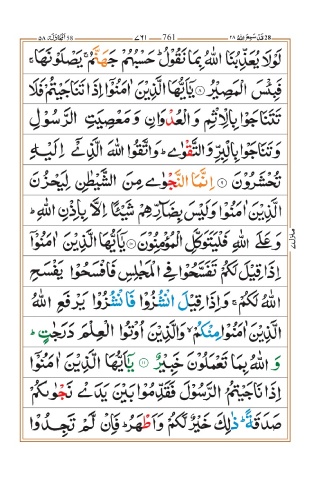 المجادلة ٥٨ ٧٦١ 761 قد سمع الله ٢٨
لَوْلَا يُعَذِّبُنَا اللّٰهُ بِمَا نَقُوْلُ ؕ حَسْبُهُمْ جَهَنَّمُ ۚ یَصْلَوْنَهَا ۚ
فَبِئْسَ الْمَصِیْرُ ۸ یٰۤاَیُّهَا الَّذِیْنَ اٰمَنُوْۤا اِذَا تَنَاجَیْتُمْ فَلَا
تَتَنَاجَوْا بِالْاِثْمِ وَ الْعُدْوَانِ وَ مَعْصِیَتِ الرَّسُوْلِ
وَ تَنَاجَوْا بِالْبِرِّ وَ التَّقْوٰی ؕ وَ اتَّقُوا اللّٰهَ الَّذِیْۤ اِلَیْهِ
تُحْشَرُوْنَ ۹ اِنَّمَا النَّجْوٰی مِنَ الشَّیْطٰنِ لِیَحْزُنَ
الَّذِیْنَ اٰمَنُوْا وَ لَیْسَ بِضَآرِّهِمْ شَیْـًٔا اِلَّا بِاِذْنِ اللّٰهِ ؕ
وَ عَلَی اللّٰهِ فَلْیَتَوَكَّلِ الْمُؤْمِنُوْنَ ۱۰ یٰۤاَیُّهَا الَّذِیْنَ اٰمَنُوْۤا
اِذَا قِیْلَ لَكُمْ تَفَسَّحُوْا فِی الْمَجٰلِسِ فَافْسَحُوْا یَفْسَحِ
اللّٰهُ لَكُمْ ۚ وَ اِذَا قِیْلَ انْشُزُوْا فَانْشُزُوْا یَرْفَعِ اللّٰهُ
الَّذِیْنَ اٰمَنُوْا مِنْكُمْ ۙ وَ الَّذِیْنَ اُوْتُوا الْعِلْمَ دَرَجٰتٍ ؕ
وَ اللّٰهُ بِمَا تَعْمَلُوْنَ خَبِیْرٌ ۱۱ یٰۤاَیُّهَا الَّذِیْنَ اٰمَنُوْۤا
اِذَا نَاجَیْتُمُ الرَّسُوْلَ فَقَدِّمُوْا بَیْنَ یَدَیْ نَجْوٰىكُمْ
صَدَقَةً ؕ ذٰلِكَ خَیْرٌ لَّكُمْ وَ اَطْهَرُ ؕ فَاِنْ لَّمْ تَجِدُوْا